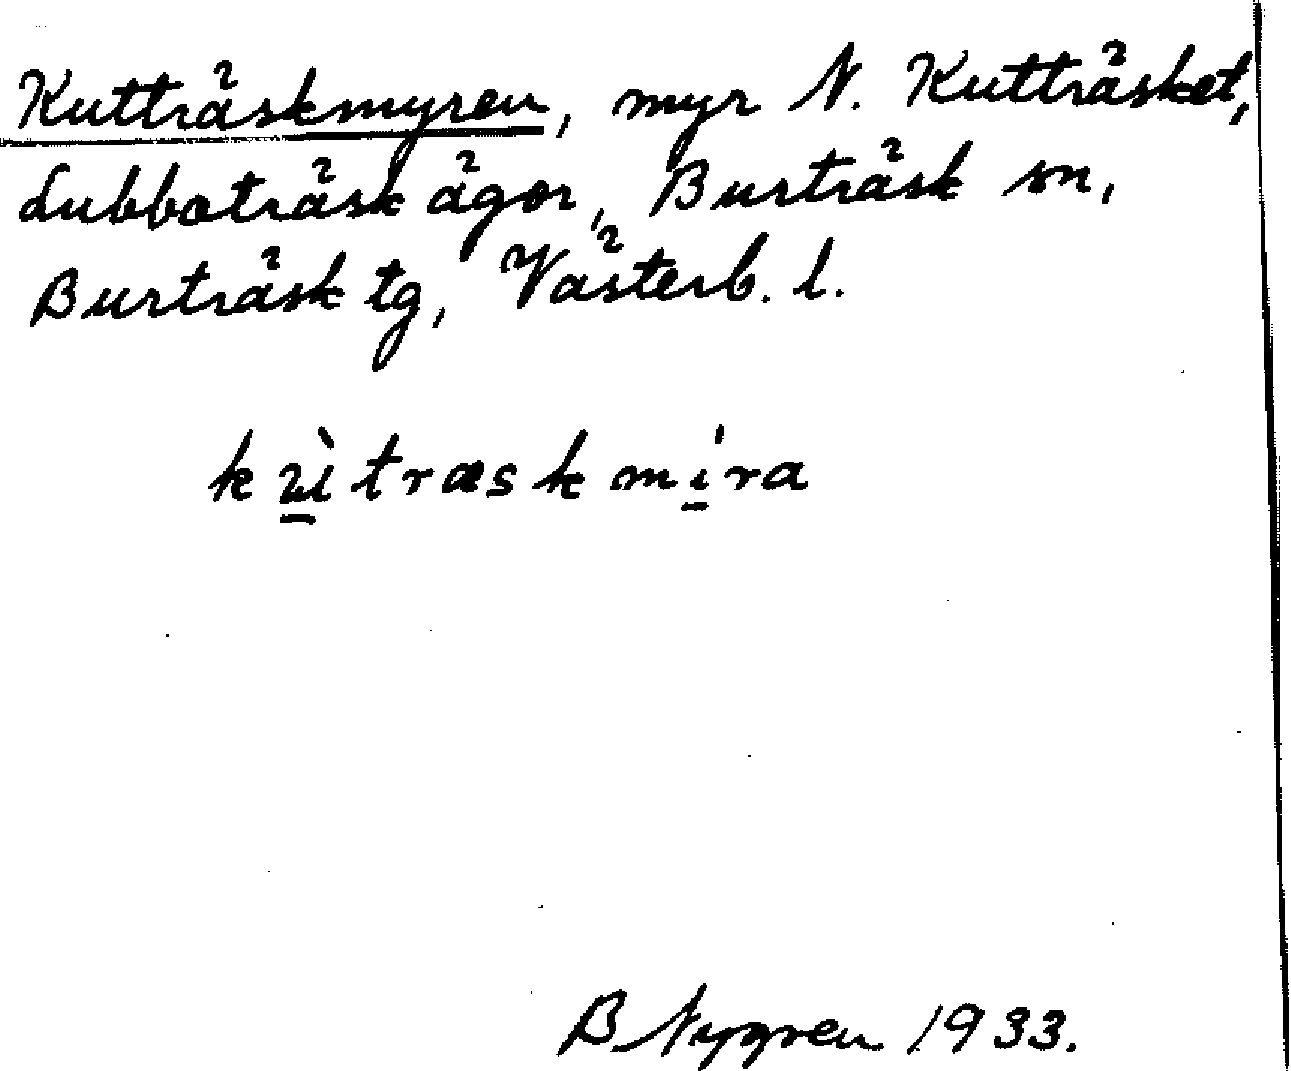 Kutträskmyren, myr N. Kutträsket,
Lubboträsk ägor, Burträsk sn,
Burträsk tg, Västerb. l.
kùtræskmíra
B Nygren 1933.